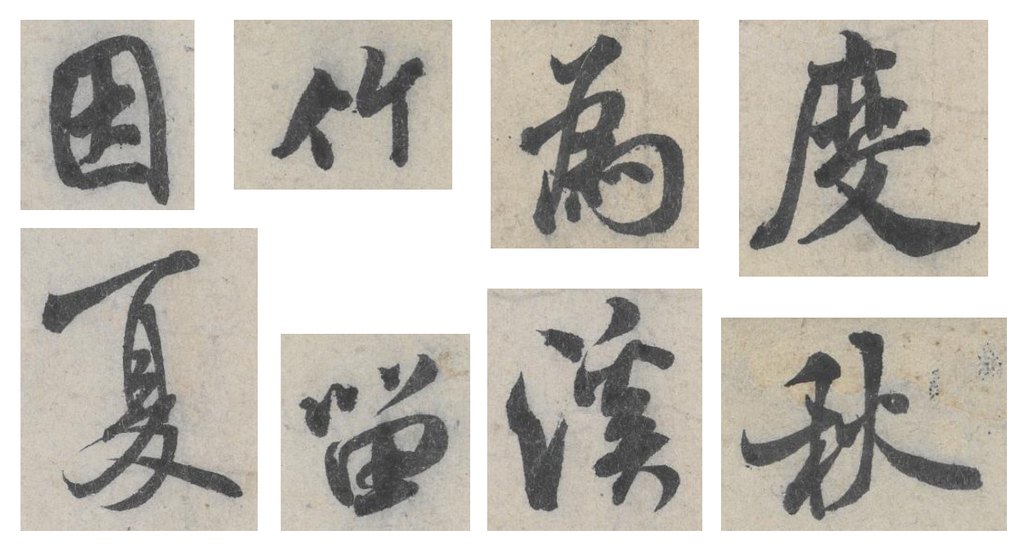 因 竹 為 度
夏 留 溪 秋